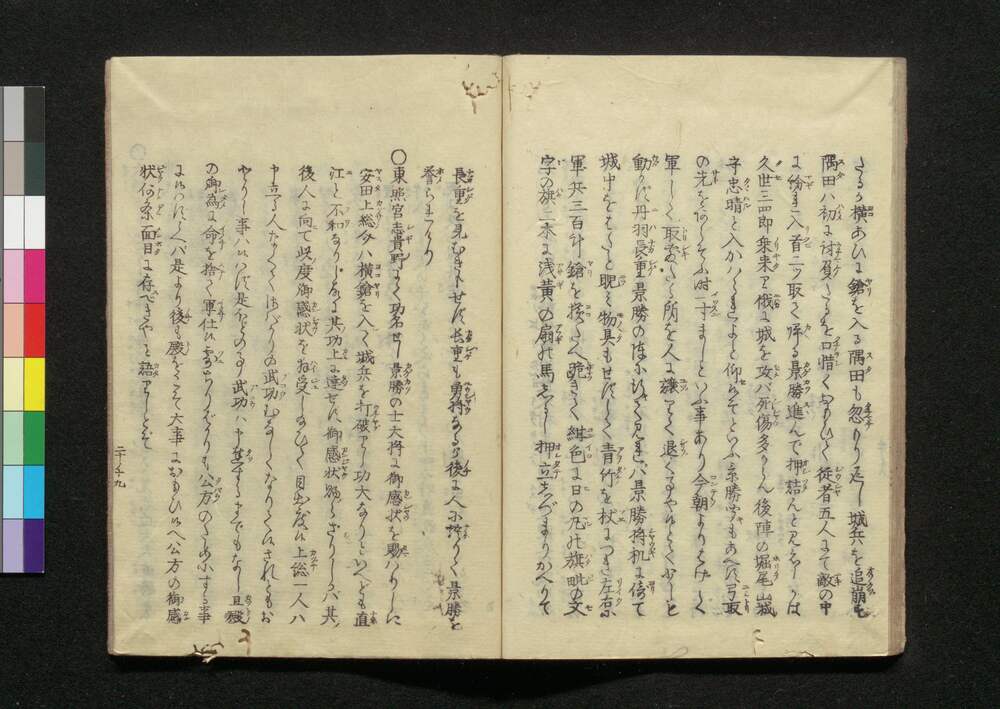 さるを横あひに鎗を入る隅田も忽とり返し城兵を追崩す
隅田ハ初に討負たるを口惜くおもひて従者五人にて敵の中
に紛れ入首二ツ取て帰る景勝進んで押詰んと
久世三四郎乗来り俄に城を攻バ死傷多からん後陣の堀尾山城
守忠晴と入かハらせよと仰らるといふ景勝少もあへず弓取
の先をあらそふ時一寸ましといふ事あり今朝よりはげしく
軍して取敷たる所を人に譲て退く事やハあるとて少しも
動かず丹羽長重景勝の陣に行きて見れバ景勝将机に倚て
城中をはたと睨ミ物具もせずして青竹を杖につき左右に
軍兵三百計鎗を横たへ跪きて紺色に日の丸の旗毗の文
字の旗二本に浅黄の扇の馬しるし押立しづまりかへりて
長重を見むきもせず長重も勇将なるが後に人に語りて景勝を
誉られたり
○東照宮志貴野にて功名せし景勝の士大将に御感状を賜ハりしに
安田上総介ハ横鎗を入て城兵を打破りし功大なりといへども直
江と不和なりし故に其功上に達せず御感状賜らざりしかバ其
後人に向て此度御感状を拝受し給ひて目出度は上総一人ハ
申立る人なくて
やうの事ハいはず是ほどの武功ハ申立るまでもなし且殿
の御為に命を捨て軍仕ハ公方のためにする事
にハいはずさバ是より後も殿をこそ大事におもひいへ公方の御感
状何条面目に存べきやと語りしとぞ
二ノ九